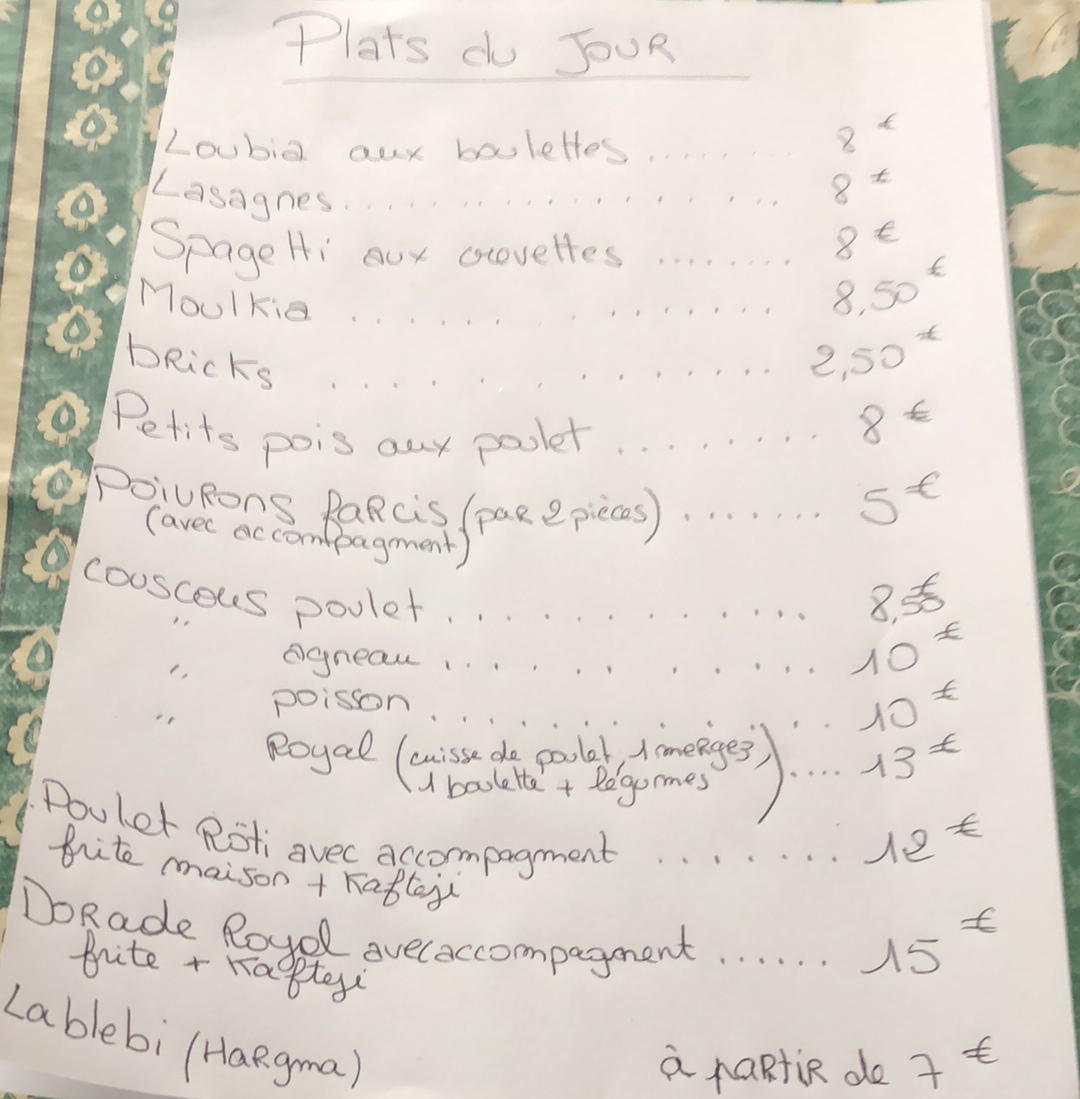 Plats du JOUR
Loubia aux boulettes ....... 8 €
Lasagnes.................. 8 €
Spagetti aux crevettes ........ 8 €
Moulkia ................ 8,50 €
bricks ................ 2,50 €
Petits pois aux poulet ........ 8 €
POIVRONS FARCIS (par 2 pièces) ....... 5 €
(avec accompagment)
COUSCOUS poulet ............ 8,50 €
" agneau ............ 10 €
" poisson ............ 10 €
" Royal (cuisse de poulet, 1 merguez, ..... 13 €
1 boulette + légumes)
Poulet Rôti avec accompagment ....... 12 €
frite maison + Kafteji
DORade Royal avec accompagment ...... 15 €
frite + Kafteji
Lablebi (HaRgma) à paRtiR de 7 €